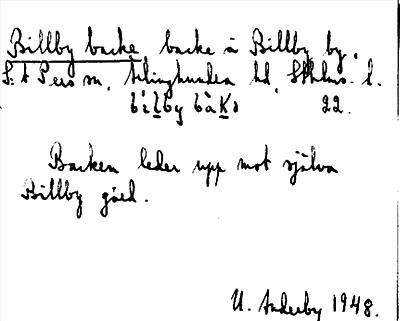 Billby backe, backe i Billby by.
S:t Pers sn, Ærlinghundra hd, Sthlms. l.
bìlby bàkə 22.
Backen leder upp mot själva
Billby gård.
U. Anderby 1948.